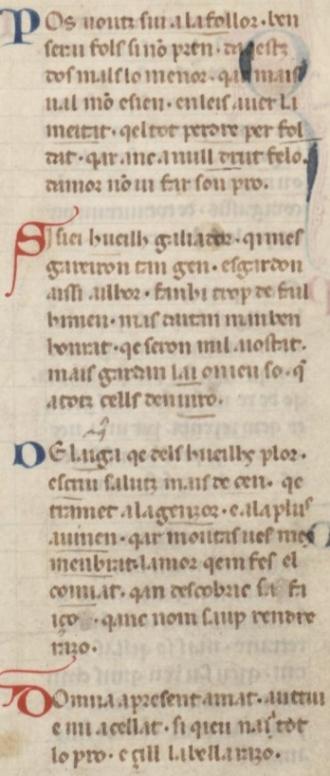 Pos uoutz sui a la follor . ben
serai fols si nõ pren . daqestz
dos mals lo menor . qar mais
ual mõ esien . enleis auer la
meitat . qel tot perdre per fol
dat . qar anc a null drut felo.
damor nõ ui far son pro.
Si siei huoill galiador . qi mes
gareron tan gen . esgardon
aissi aillor . fan hi trop de fail
himen . mas daitan man ben
honrat . qe seron mil aiostat .
mais gardan lai on ieu so . q̃
a totz cells deuiro .
De laiga qe dels huoills plor .
escriu salutz mais de cen . qe
tramet a la gensor . e a la plus
auinen . qar moutas ues me
menbrat . lamor qem fes el
comiat . qan descobric sa fa
iço . qanc nom saup rendre
razo .
Domna a presen amat . autrui
e mi a cellat . si qieu nai tot
lo pro . e çill la bella razo .